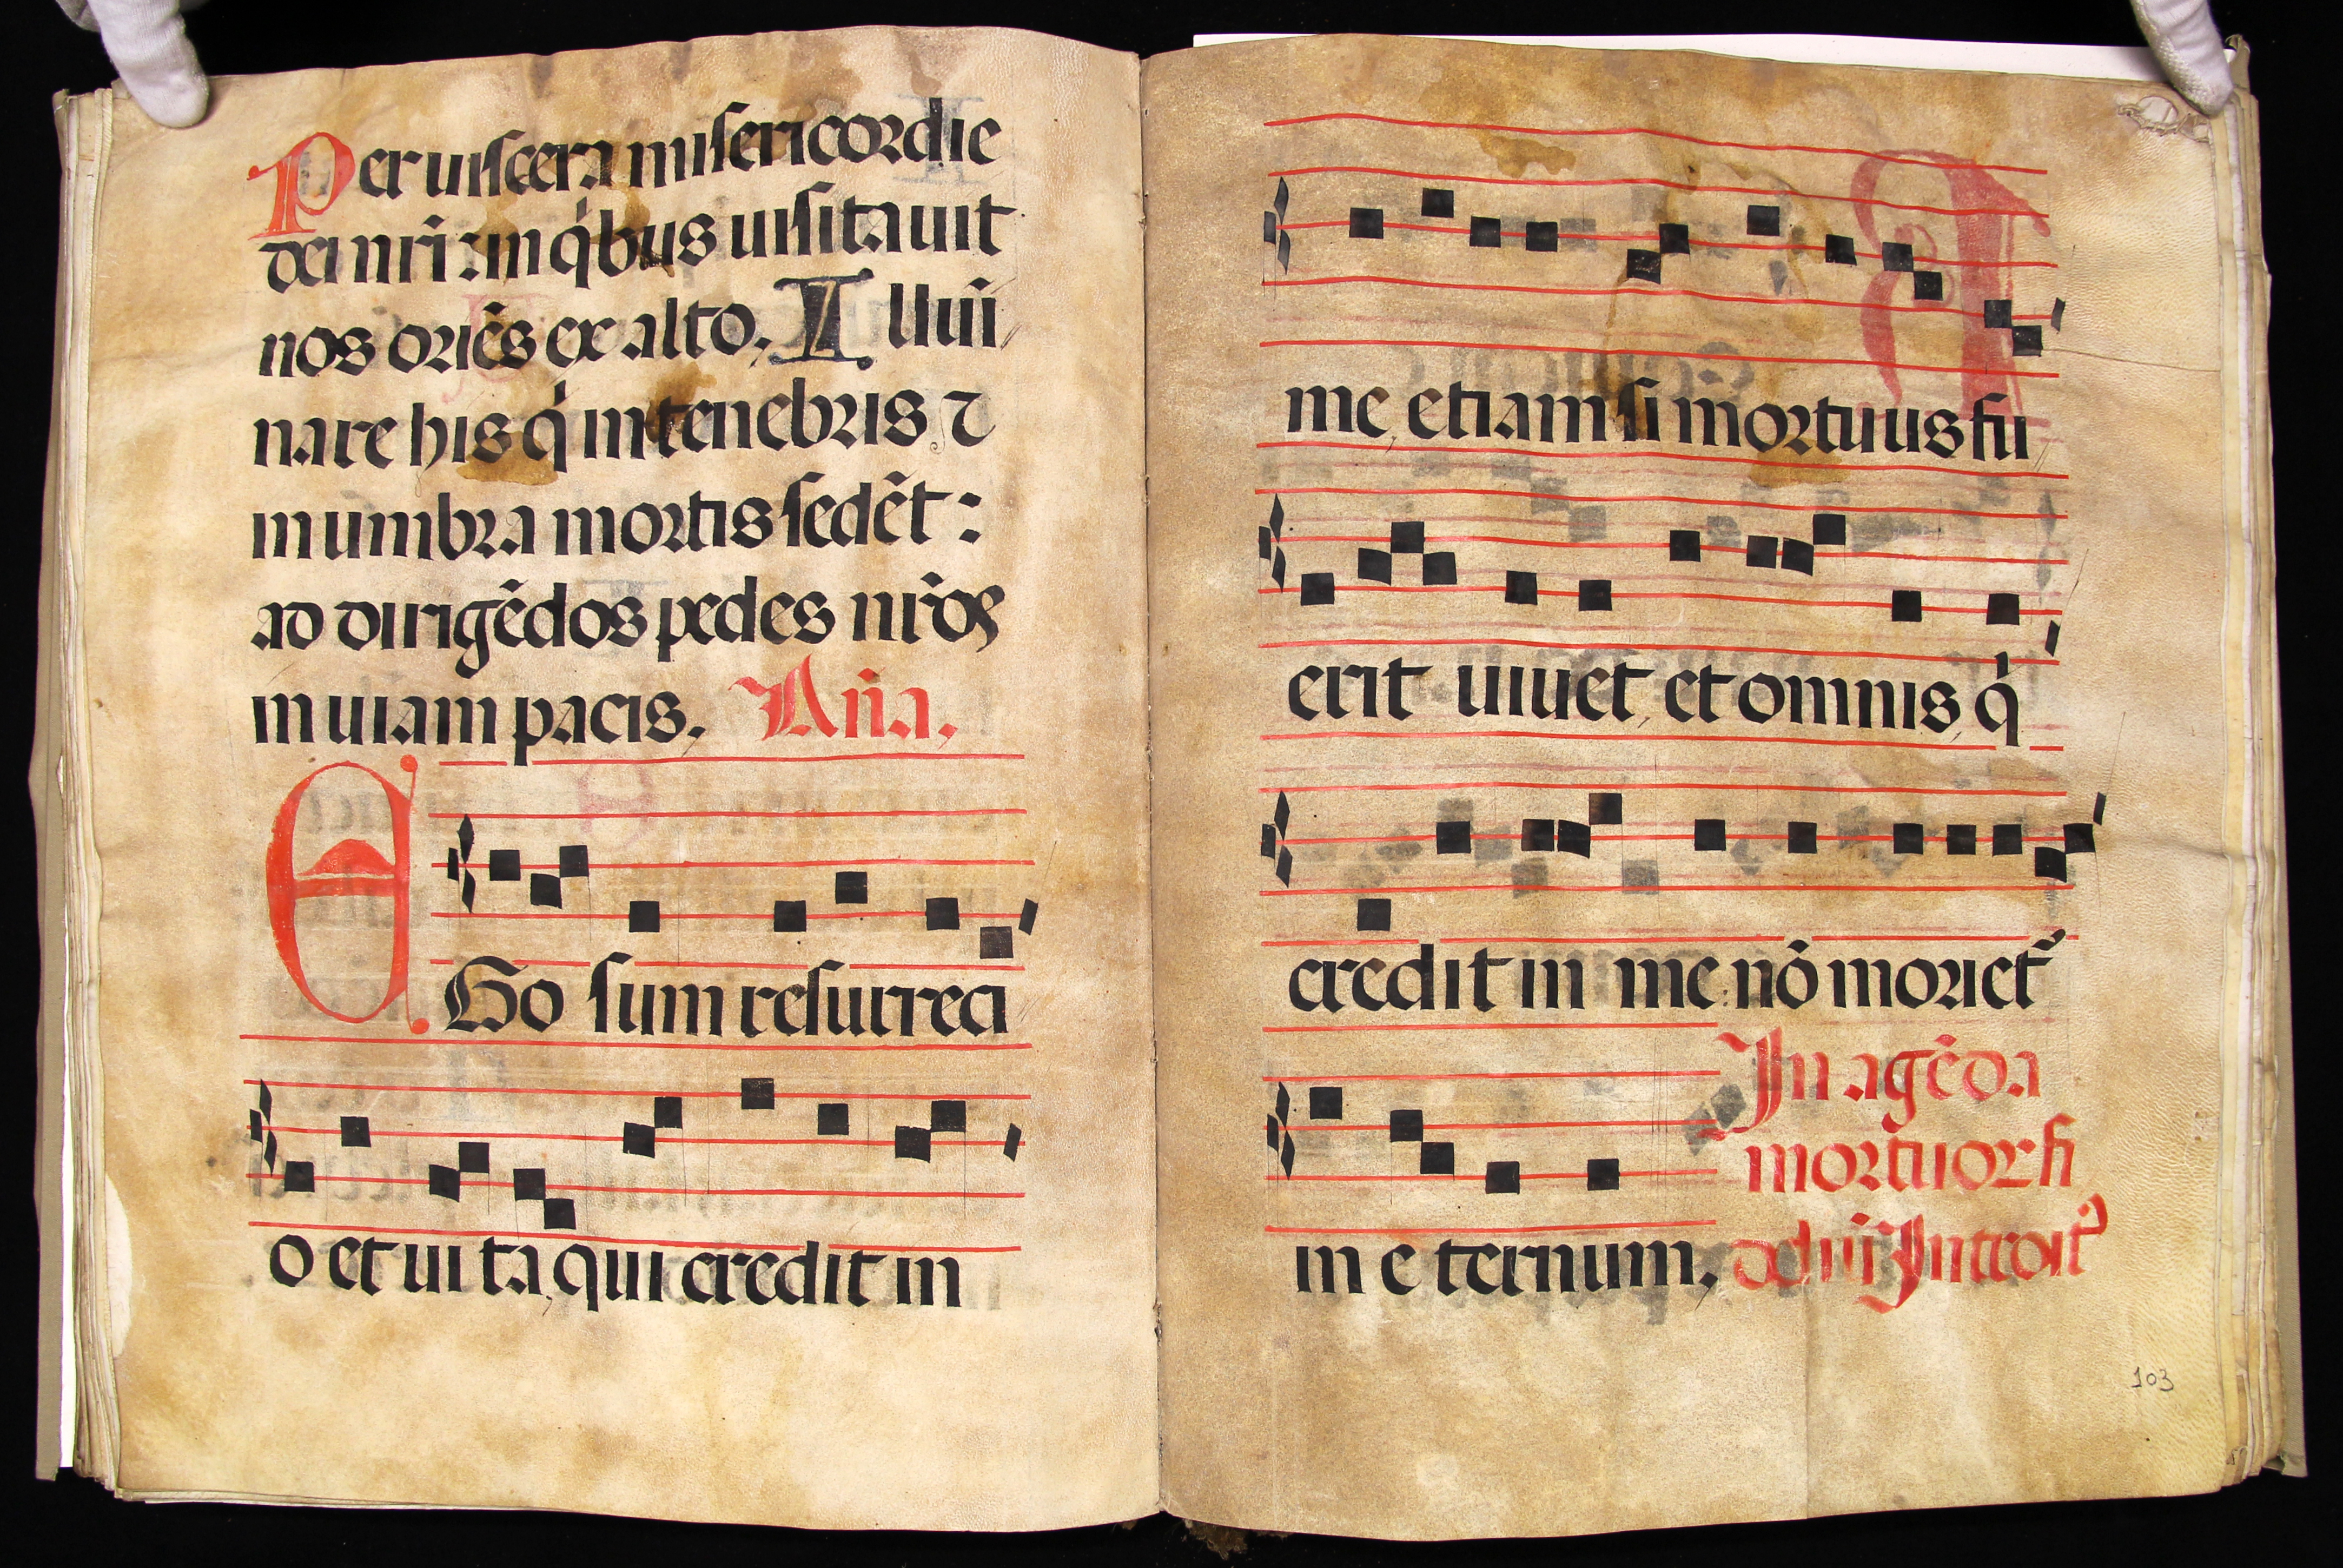 Per uiscera misericordie
dei nr̃i: in q'bus uisitauit
nos oriẽs ex alto. Illumi
nare his q' in tenebris ⁊
in umbra mortis sedẽt:
ad dirigẽdos pedes nr̃os
in uiam pacis. Aña.
EGo sum resurrecti
o et uita, qui credit in
me, etiam si mortuus fu
erit uiuet, et omnis, q'
credit in me: nõ moriet᷑
in eternum. In agẽda
mortuor fi
delíu᷑ Introit᷒
103